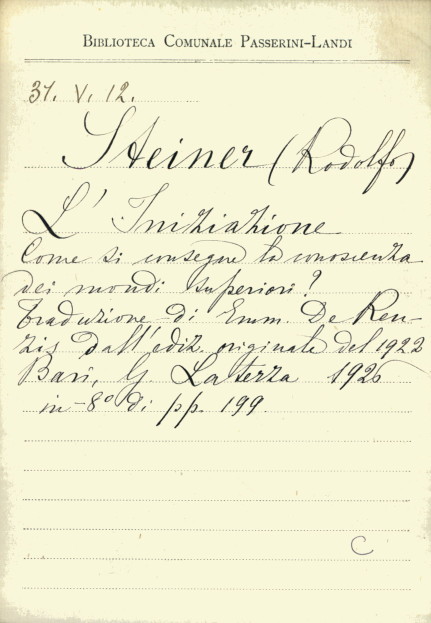 BIBLIOTECA COMUNALE PASSERINI-LANDI
31. V. 12.
Steiner (Rodolfo)
L' Iniziazione
Come si consegue la conoscenza
dei mondi superiori?
Traduzione di Emm. De Ren-
zis dall'ediz. originale del 1922
Bari, G. Laterza 1926
in-8º di pp. 199.
C